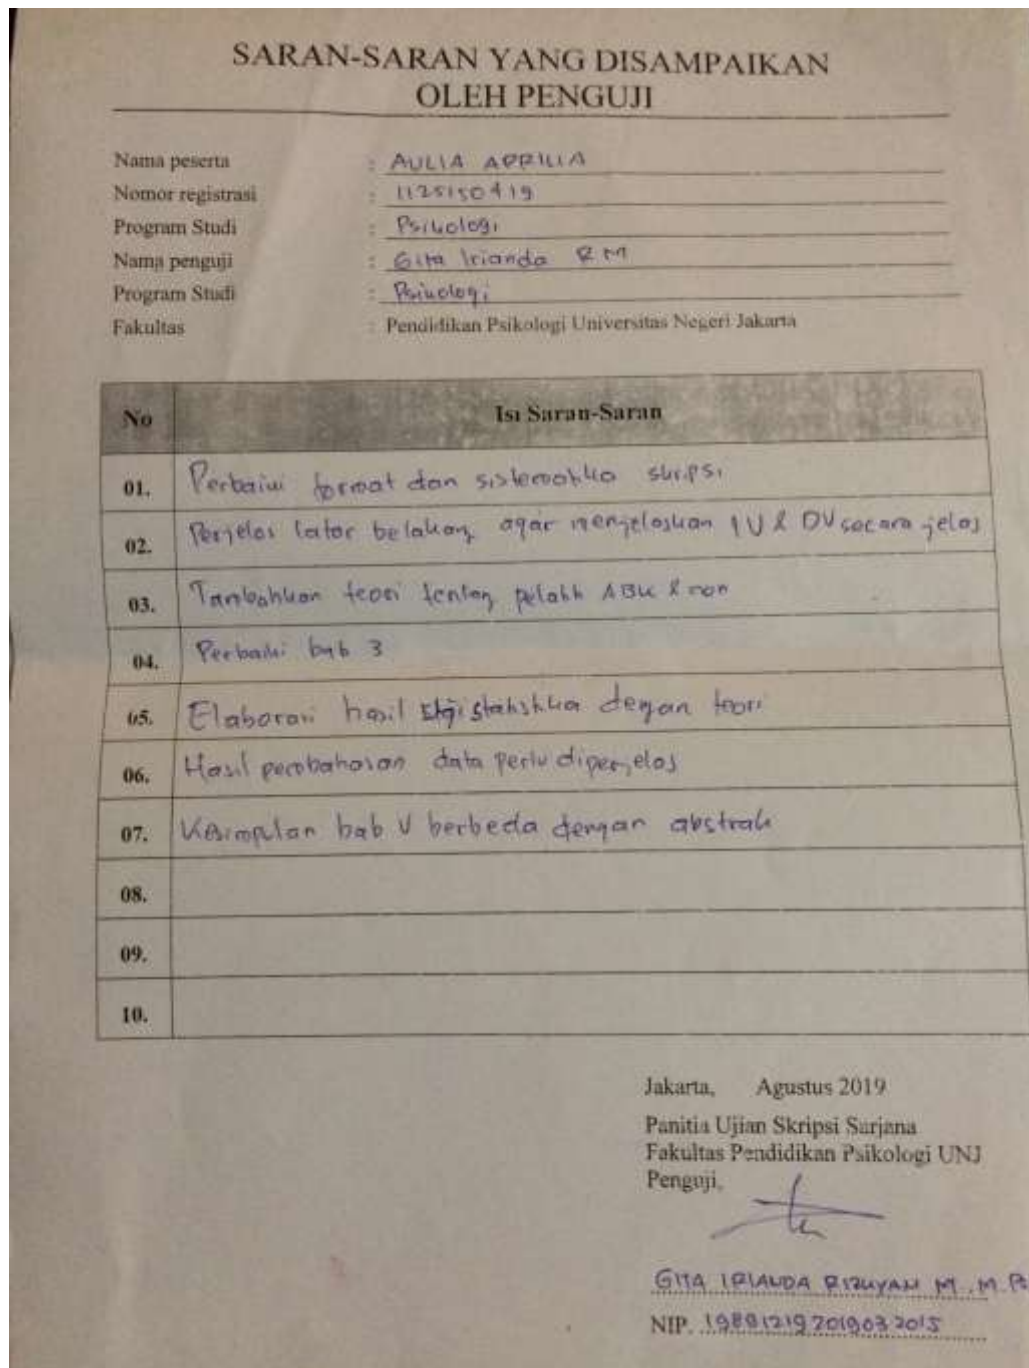 SARAN-SARAN YANG DISAMPAIKAN
OLEH PENGUJI
Nama peserta : AULIA APRILIA
Nomor registrasi : 1125150419
Program Studi : Psikologi
Nama penguji : Gita Irianda R M
Program Studi : Psikologi
Fakultas : Pendidikan Psikologi Universitas Negeri Jakarta
No Isi Saran-Saran
01. Perbaiki format dan sistematika skripsi
02. Perjelas latar belakang agar menjelaskan IV & DV secara jelas
03. Tambahkan teori tentang pelatih ABK & non
04. Perbaiki bab 3
05. Elaborasi hasil statistika dengan teori
06. Hasil pembahasan data perlu diperjelas
07. Kesimpulan bab V berbeda dengan abstrak
08.
09.
10.
Jakarta, Agustus 2019
Panitia Ujian Skripsi Sarjana
Fakultas Pendidikan Psikologi UNJ
Penguji,
GITA IRIANDA RIZKYAN M., M.
NIP. 198912192019032015